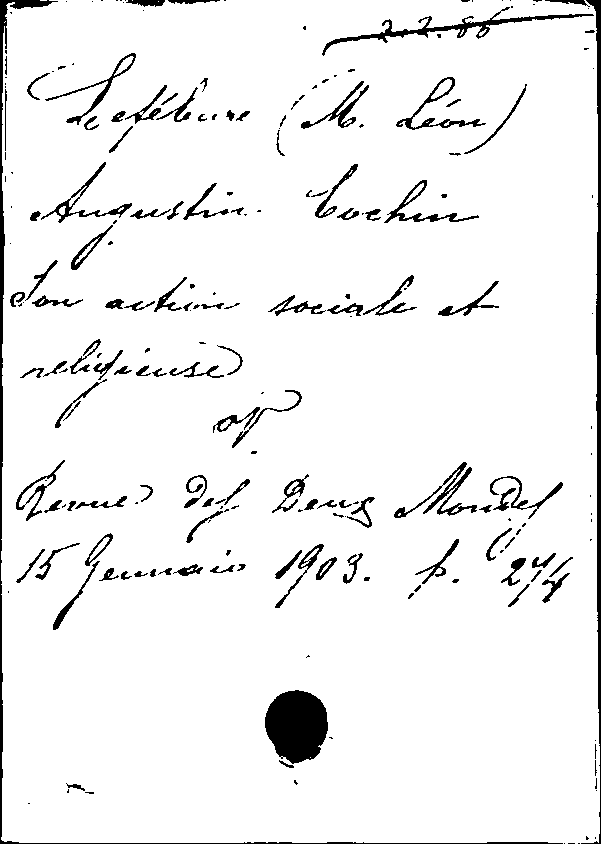 2.2.86
Lefébure (M. Léon)
Augustin Cochin
Son action sociale et
religieuse
ap.
Revue des Deux Mondes
15 Gennaio 1903. p. 274